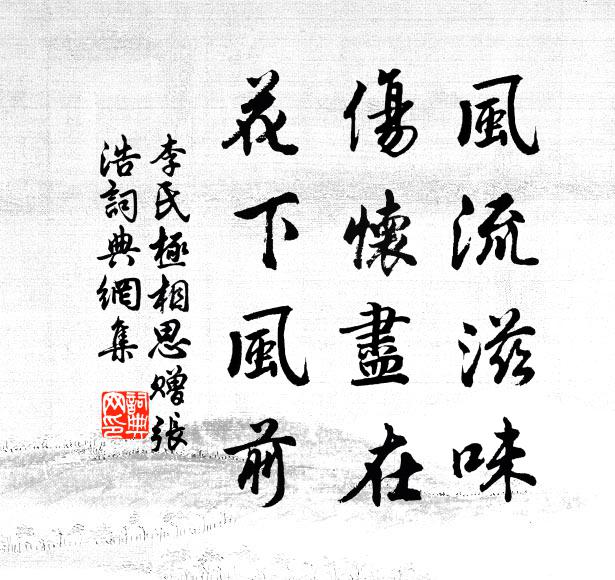 風流滋味
傷懷盡在
花下風前
李氏極相思贈張
浩詞典網集
詞典
网印